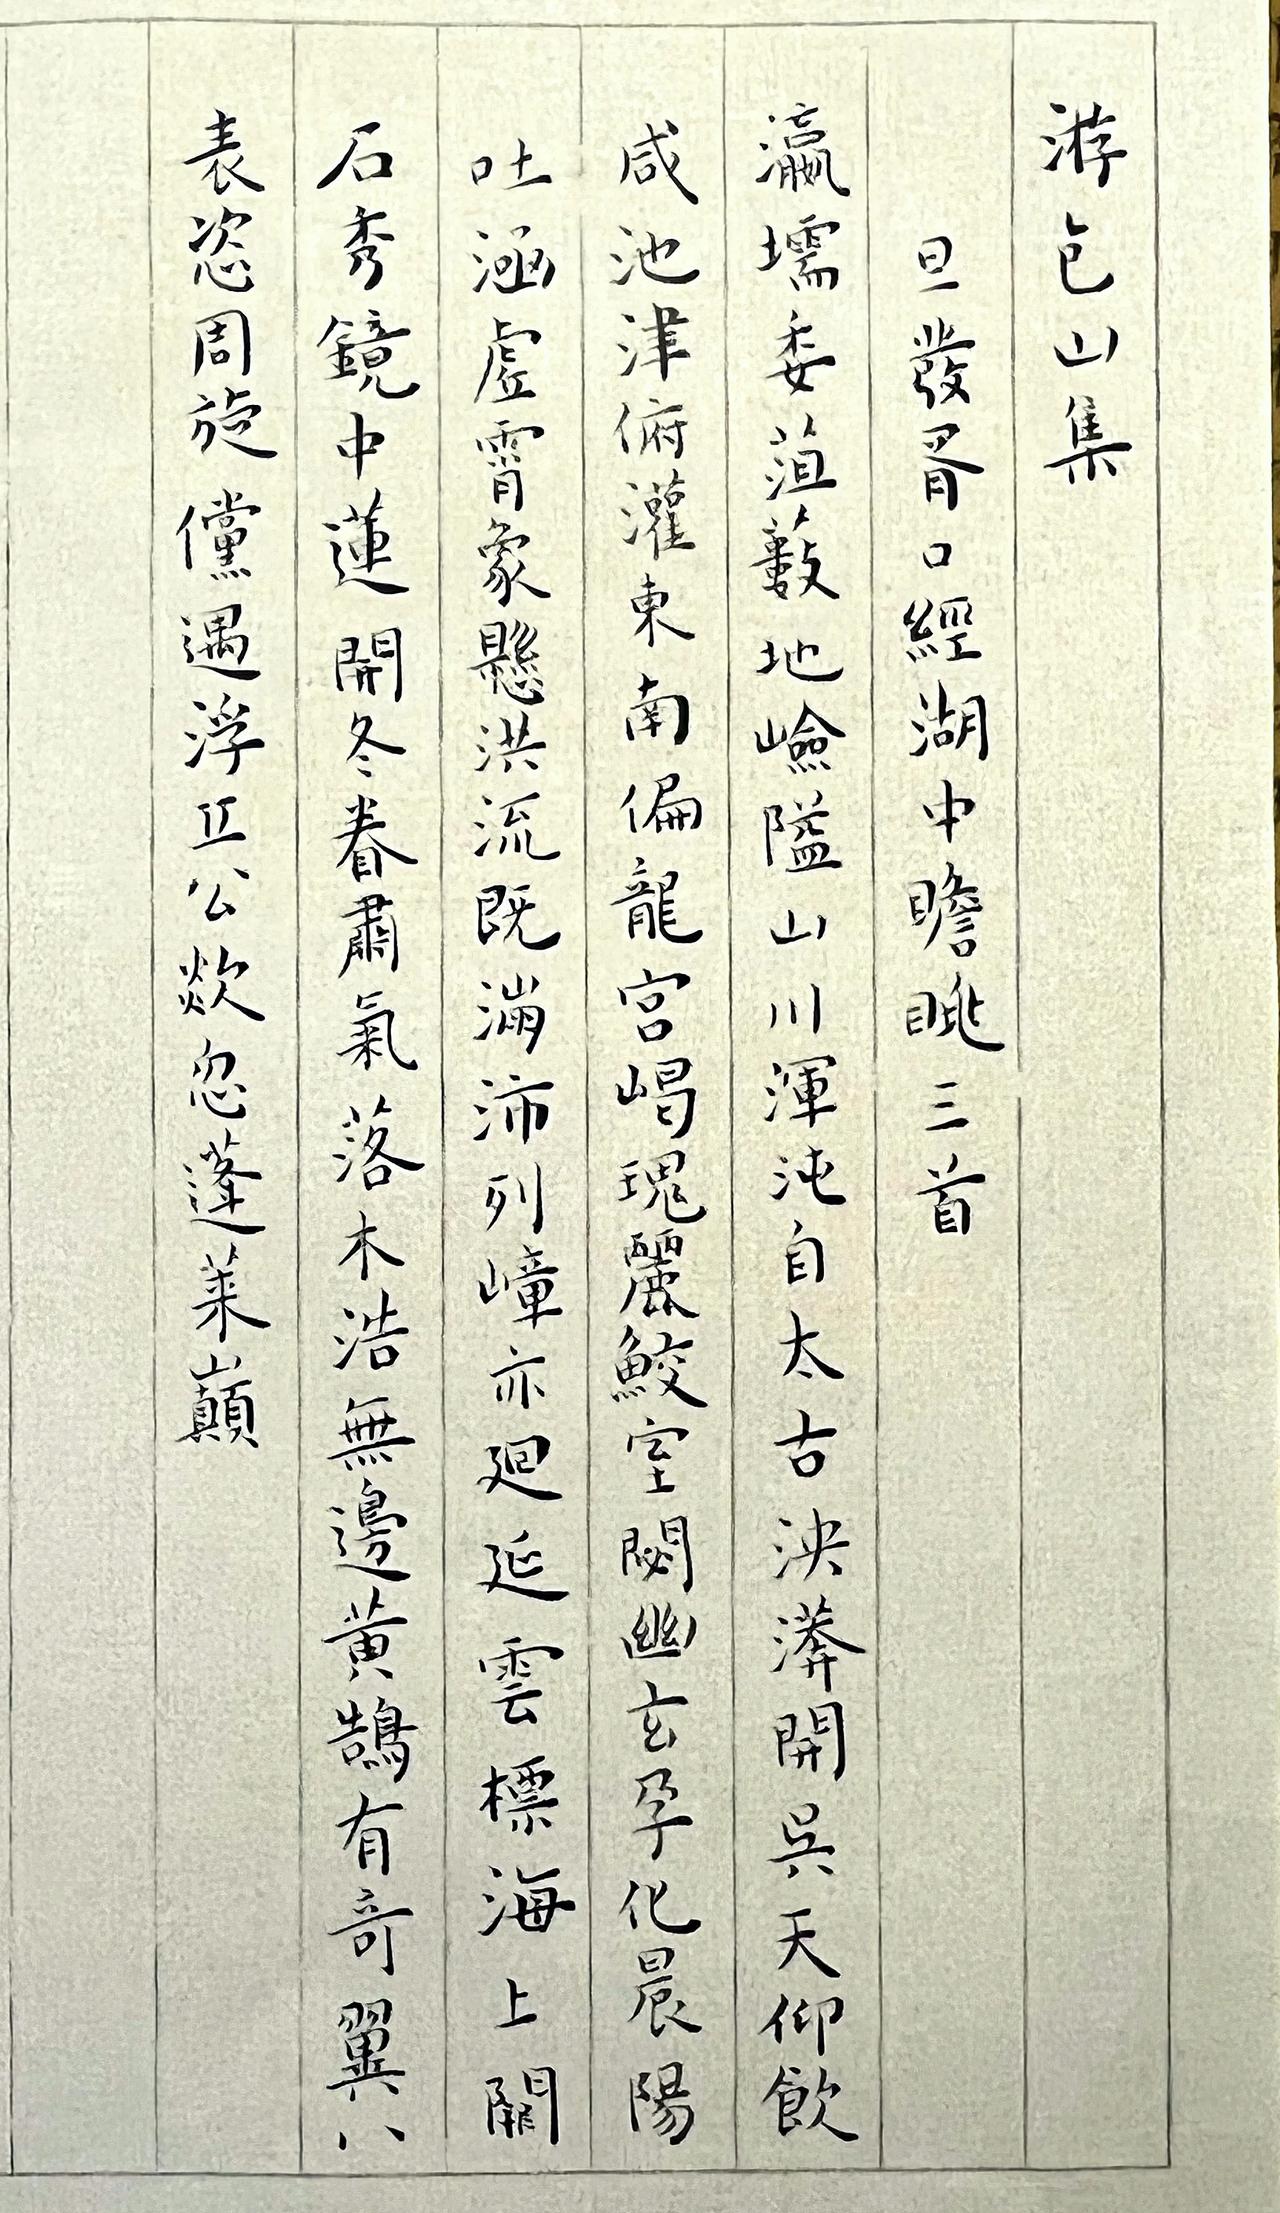 游包山集
旦發胥口經湖中瞻眺三首
瀛壖委菹藪地嶮隘山川渾沌自太古泱漭開吳天仰飲
咸池津俯灌東南偏龍宮嵑瑰麗鮫室閟幽玄孕化晨陽
吐涵虛霄象懸洪流既滿沛列嶂亦廻延雲標海上關
石秀鏡中蓮開冬眷肅氣落木浩無邊黃鵠有奇翼八
表恣周旋儻遇浮丘公欻忽蓬萊巔